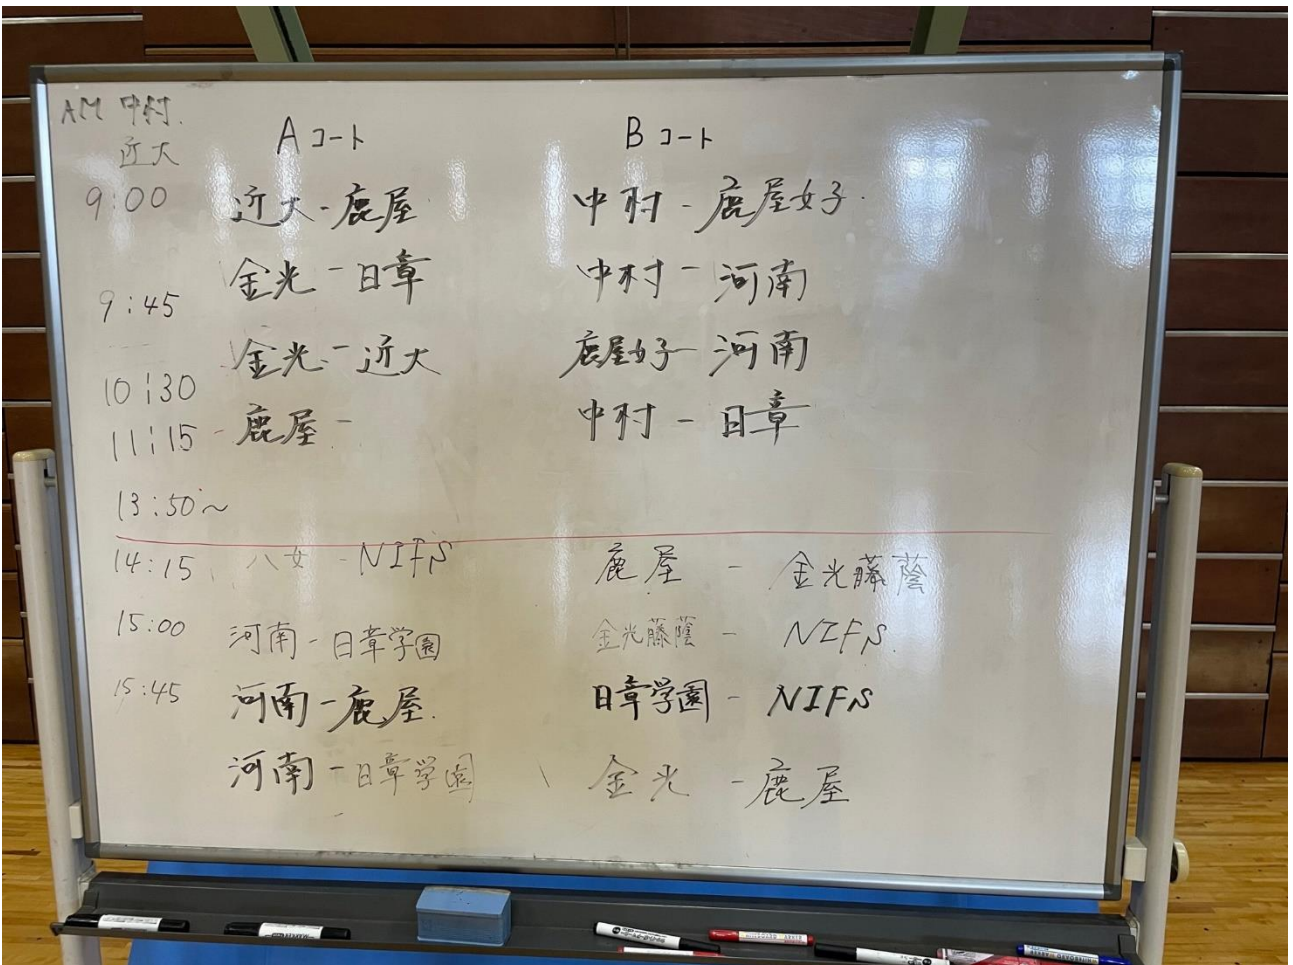 AM 中村.
近大
Aコート Bコート
9:00 近大-鹿屋 中村-鹿屋女子
9:45 金光-日章 中村-河南
10:30 金光-近大 鹿屋女子-河南
11:15 鹿屋- 中村-日章
13:50~
14:15 八女-NIFS 鹿屋-金光藤蔭
15:00 河南-日章学園 金光藤蔭-NIFS
15:45 河南-鹿屋 日章学園-NIFS
河南-日章学園 金光-鹿屋